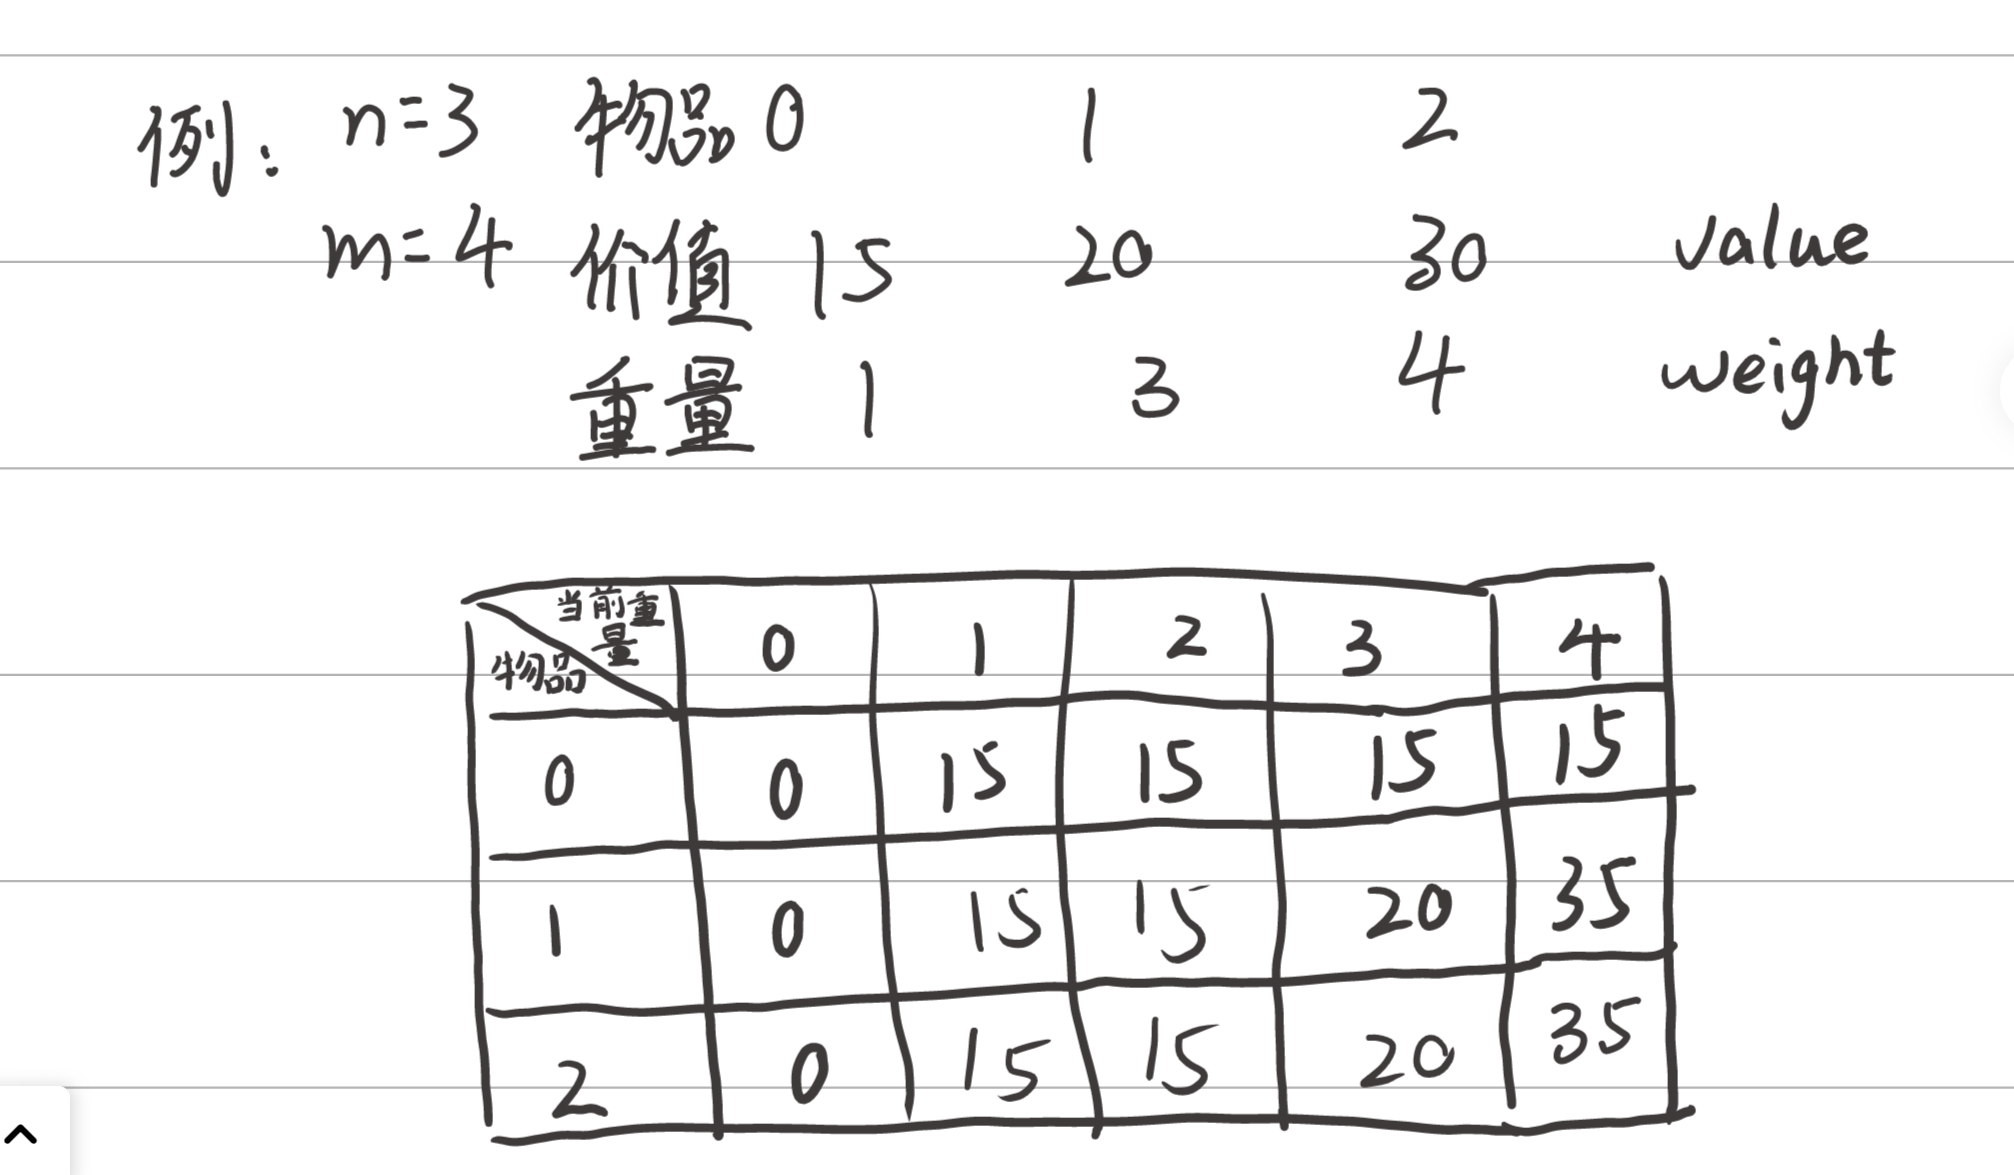 例: n=3 物品 0 1 2
m=4 价值 15 20 30 value
重量 1 3 4 weight
当前重
量
物品
0 1 2 3 4
0 0 15 15 15 15
1 0 15 15 20 35
2 0 15 15 20 35